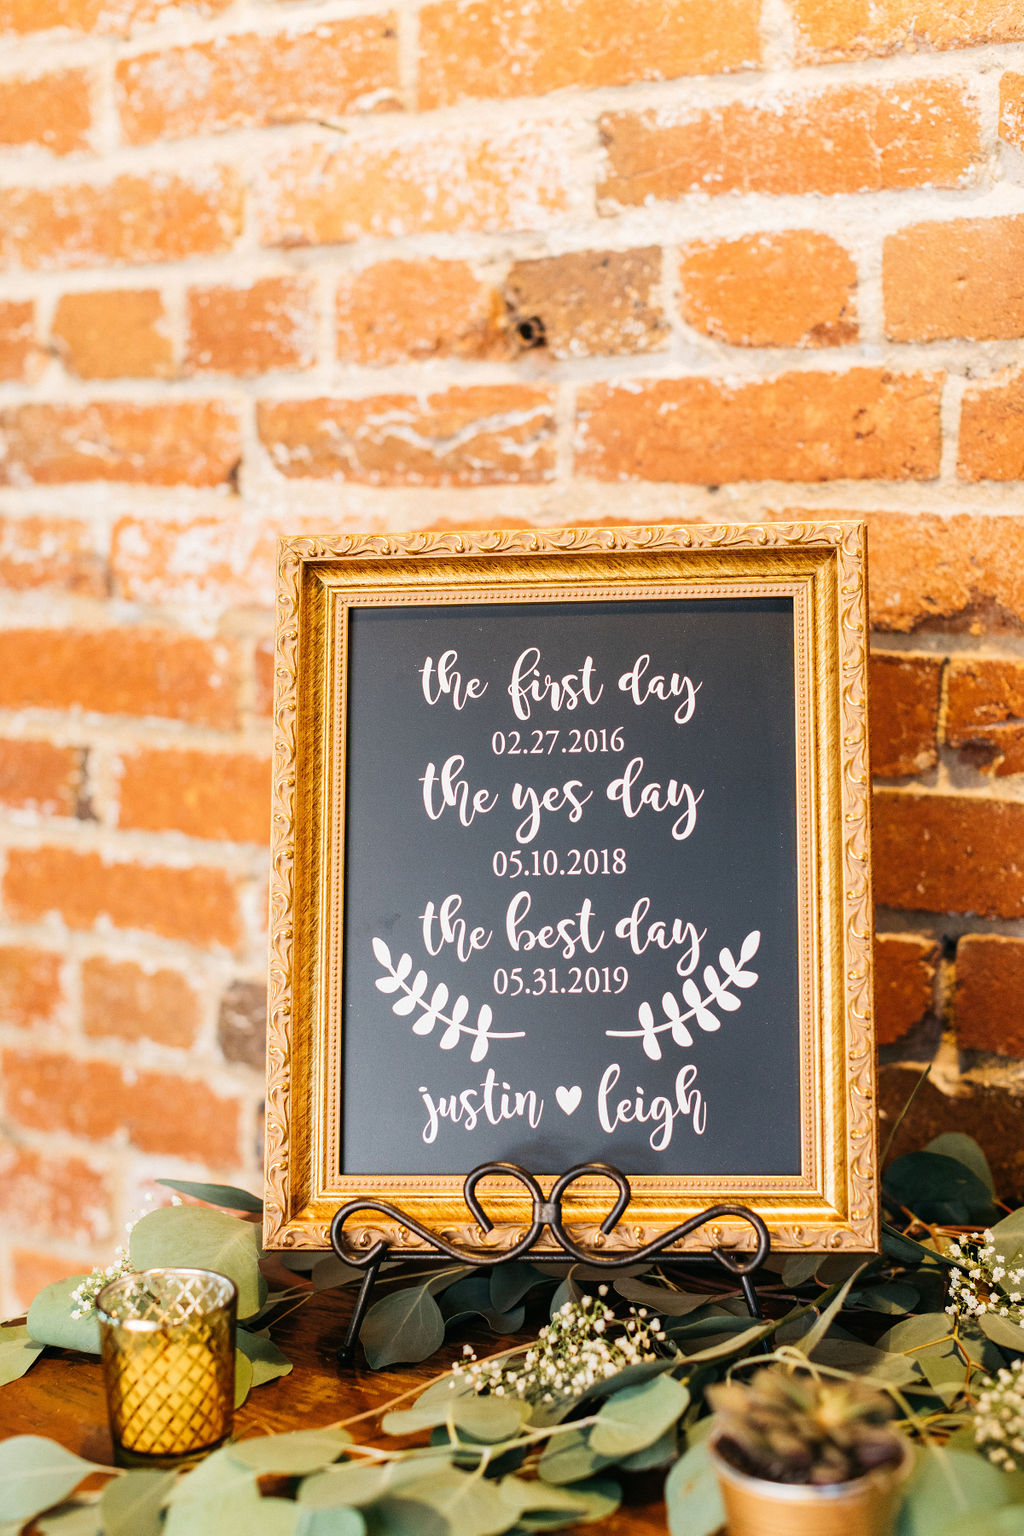 the first day
02.27.2016
the yes day
05.10.2018
the best day
05.31.2019
justin ♥ leigh